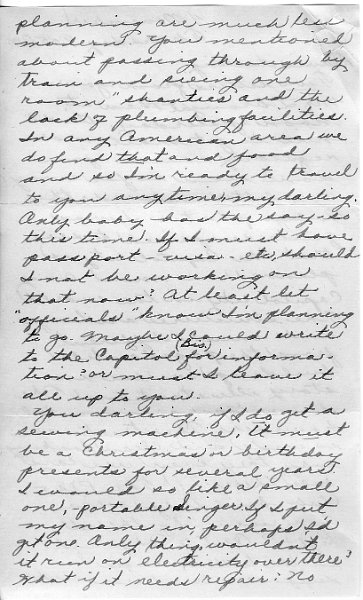 planning are much less
modern. You mentioned
about passing through by
train and seeing one
room "shanties and the
lack of plumbing facilities.
In any American area we
do find that and food
and so I'm ready to travel
to you anytime my darling.
Only baby has the say-so
this time. If I must have
passport - visa - etc, should
I not be working on
that now? At least let
"officials" know I'm planning
to go. Maybe I could write
to the Capitol (Bis.) for informa-
tion? or must I leave it
all up to you.
You darling, if I do get a
sewing machine, it must
be a Christmas n birthday
presents for several years.
I would so like a small
one, portable Singer. If I put
my name in perhaps I'd
get one. Only thing, wouldn't
it run on electricity over there?
What if it needs repair? No